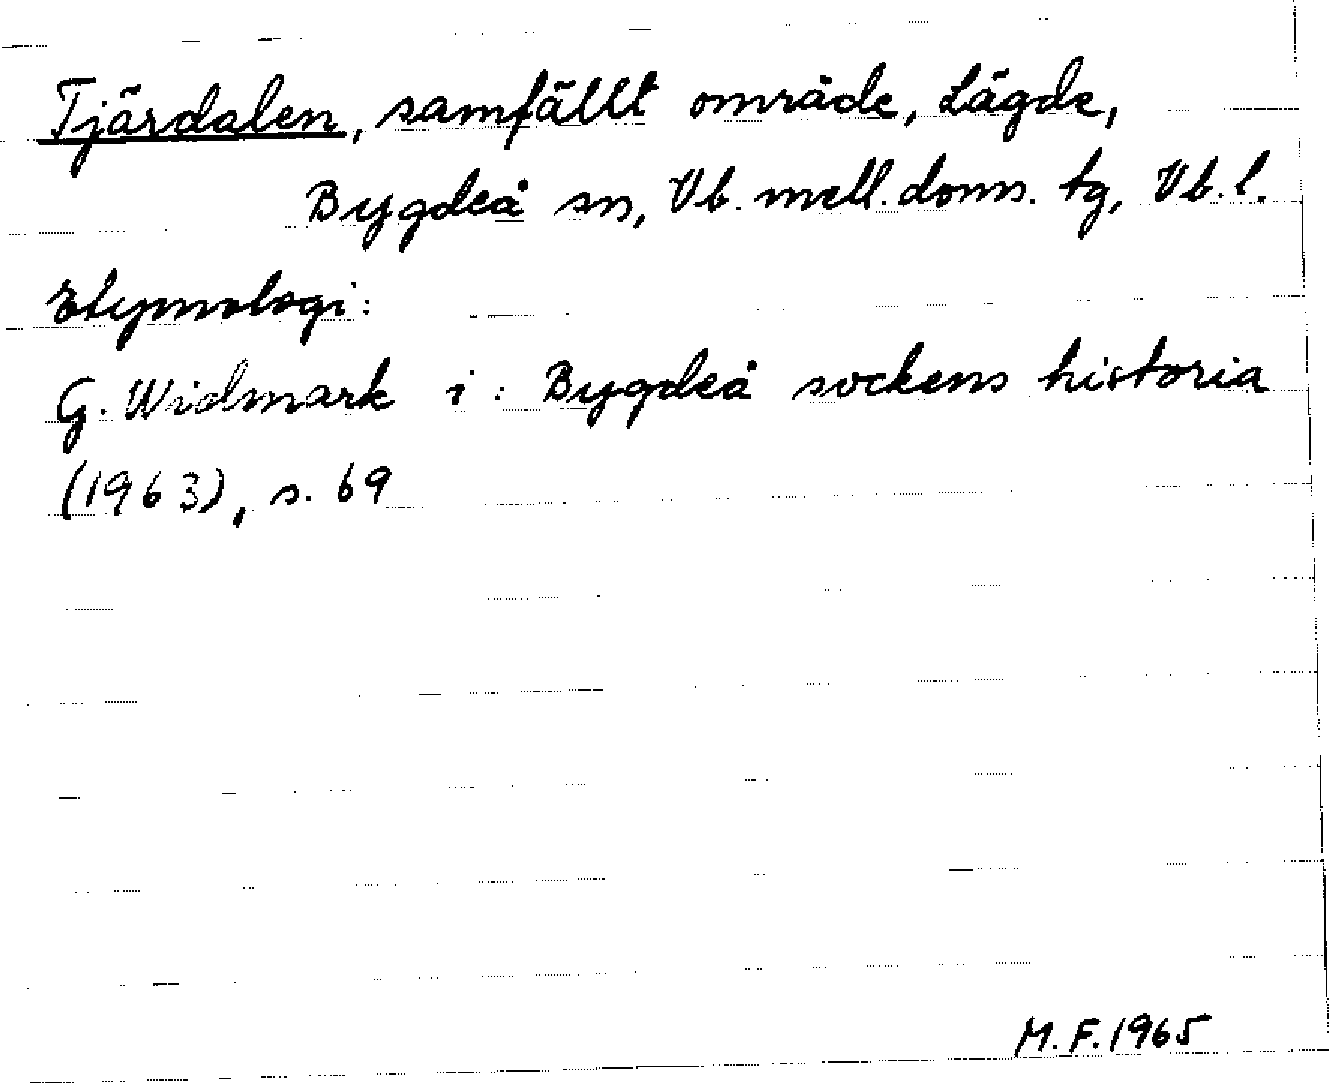 Tjärdalen, samfällt område, Lägde,
Bygdeå sn, Vb. mell. doms. tg, Vb. l.
Etymologi:
G. Widmark i: Bygdeå sockens historia
(1963), s. 69
M. F. 1965